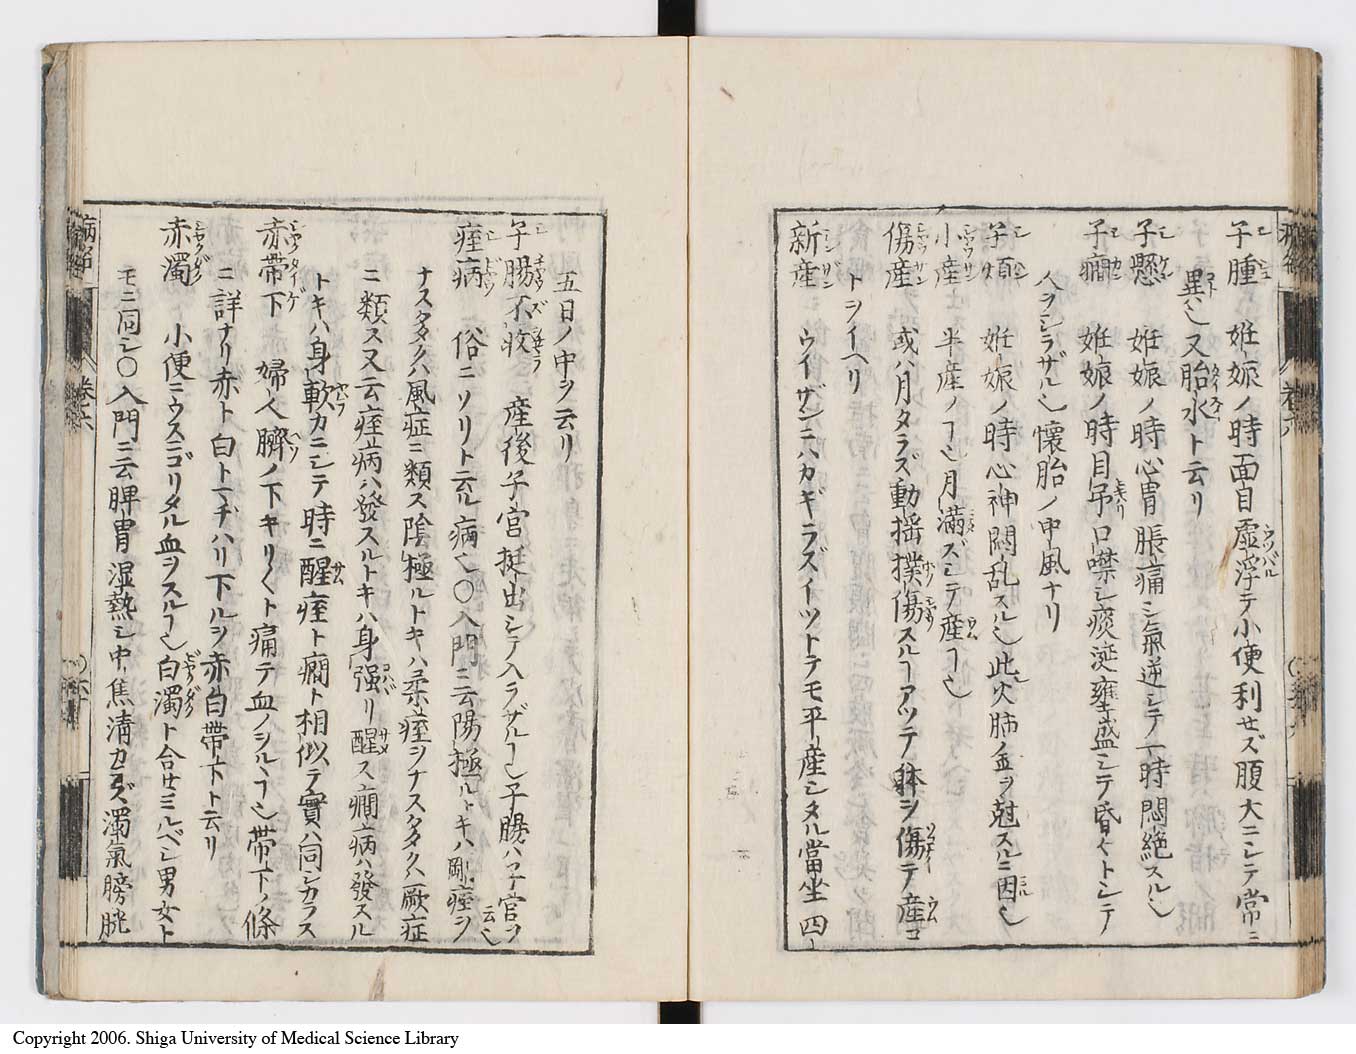 子腫 姙娠ノ時面目虛浮テ小便利せズ腹大ニシテ常ニ
異ヘ乄又胎水ト云リ
子懸 姙娠ノ時心胃脹痛シ氣逆シテ一時悶絶スル乄
子癇 姙娠ノ時目吊口噤シ痰涎壅盛シテ昏々トシテ
人ヲシラザル乄懷胎ノ中風ナリ
子煩 姙娠ノ時心神悶乱スル乄此火肺金ヲ尅スルニ因乄
小産 半産ノヿ乄月滿スシテ産ヿ乄
傷産 或ハ月タラズ動揺撲傷スルヿアツテ躰ヲ傷テ産コ
トヲイヘリ
新産 ウイザンニハカギラズイツトテモ平産シタル當坐四十
五日ノ中ヲ云リ
子腸不收 産後子宮挺出シテ入ラザルヿ乄子腸ハコ子宮ヲ云乄
痓病 俗ニソリト云ル病乄〇入門ニ云陽極ルトキハ剛痓ヲ
ナスタメハ風症ニ類ス陰極ルトキハ柔痓ヲナスタメハ厥症
ニ類ス又云痓病ハ發スルトキハ身强リ醒ス癇病ハ發スル
トキハ身軟カニシテ時ニ醒痓ト癇ト相似テ實ハ同シカラス
赤帶下 婦人臍ノ下キリ〱ト痛テ血ノヲルヽヿ乄帶下ノ條
ニ詳ナリ赤ト白トマヂハリ下ルヲ赤白帶下ト云リ
赤濁 小便ニウスニゴリタル血ヲスルヿ乄白濁ト合せミルベシ男女ト
モニ同シ〇入門ニ云脾胃湿熱シ中焦清カラズ濁氣膀胱